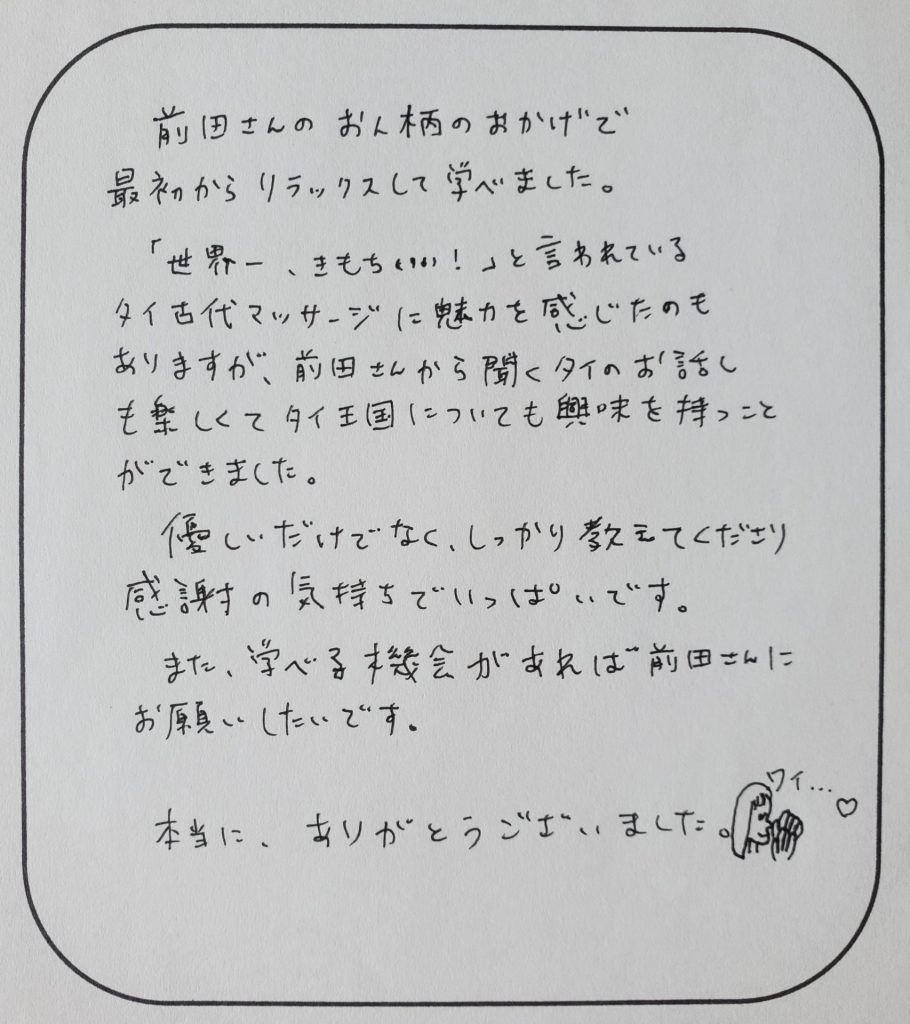 前田さんのお人柄のおかげで
最初からリラックスして学べました。
「世界一、きもちいい！」と言われている
タイ古代マッサージに魅力を感じたのも
ありますが、前田さんから聞くタイのお話し
も楽しくてタイ王国についても興味を持つこと
ができました。
優しいだけでなく、しっかり教えてくださり
感謝の気持ちでいっぱいです。
また、学べる機会があれば前田さんに
お願いしたいです。
ワイ...♡
本当に、ありがとうございました。